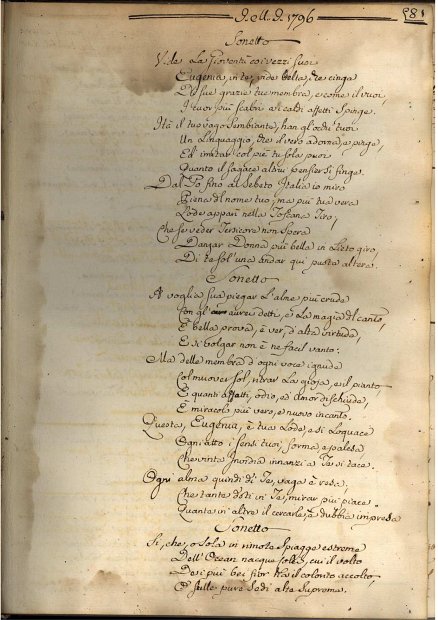 D. M. D. 1796
581
Sonetto
Vide La Gioventù coi vezzi suoi
Eugenia, in te, vide beltà, che cinga
Di sue grazie tue membra, e come il vuoi,
I cuor più scabri a caldi affetti Spinge.
Ha il tuo vago Sembiante, han gl'occhi tuoi
Un Linguaggio, che il vero adorna, e pinge,
Ed imitar col piè tu sola puoi
Quanto il sagace altrui pensier Si finge.
Dal Po fino al Sebeto Italia io miro
Piena del nome tuo; ma più tua vera
Lode appari nella Toscana Tiro;
Che se veder Tersicore non Spera
Danzar Donna più bella in Lieto giro,
Di te sol' una andar qui puote altera.
Sonetto
A voglia sua piegar L'alme più crude
Con gl' aurei detti, e La magia del canto,
È bella prova, è ver, d'alta virtude,
E di volgar non è ne facil vanto:
Ma delle membra d'ogni voce ignude
Col muover sol, ritrar La gioja, e il pianto
E quanti affetti, odio, ed amor dischiude,
È miracolo più vero, e nuovo incanto.
Questa, Eugenia, è tua Lode, e sì Loquace
Ogni atto i sensi tuoi, forma, e palesa
Che vinta Invidia innanzi a Te si tace.
Ogni alma quindi di Te, vaga è resa;
Che tante doti in Te, mirar più piace
Quanto in altre il cercarle, è dubbia impresa
Sonetto
Sì, che, o Sola in rimota Spiagge estreme
Dell' Ocean nacque folta, cui il volto
De' più bei fior ha il colorito accolto
E sulle pure Sedi alta Suprema.